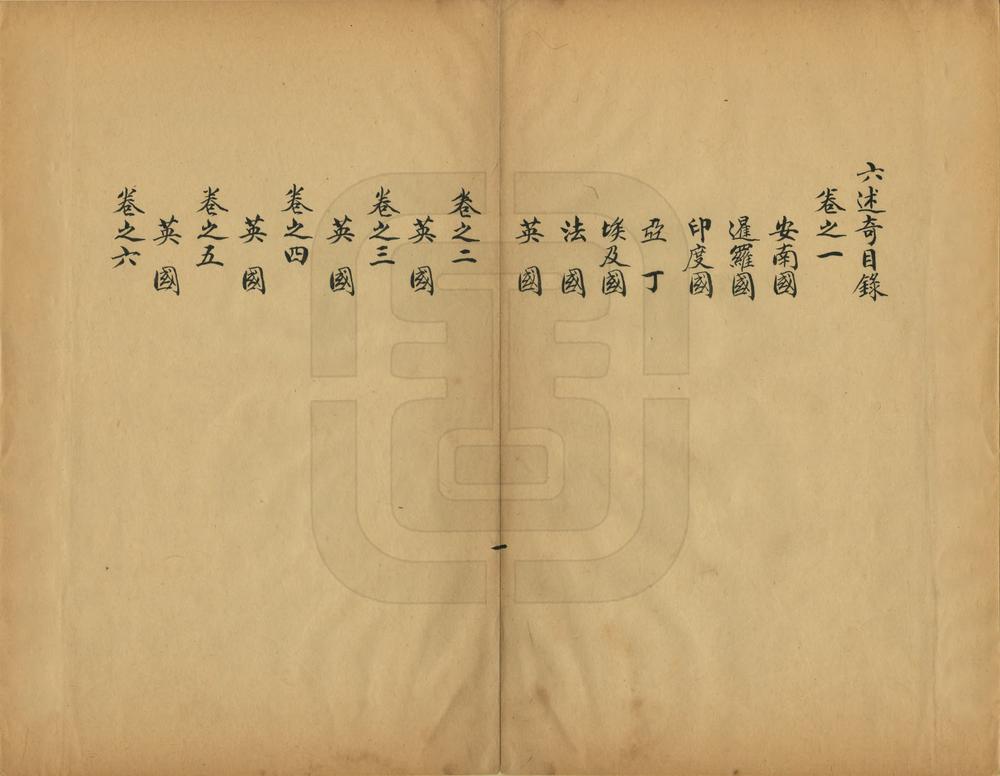 六述奇目錄
卷之一
安南國
暹羅國
印度國
亞丁
埃及國
法國
英國
一
卷之二
英國
卷之三
英國
卷之四
英國
卷之五
英國
卷之六